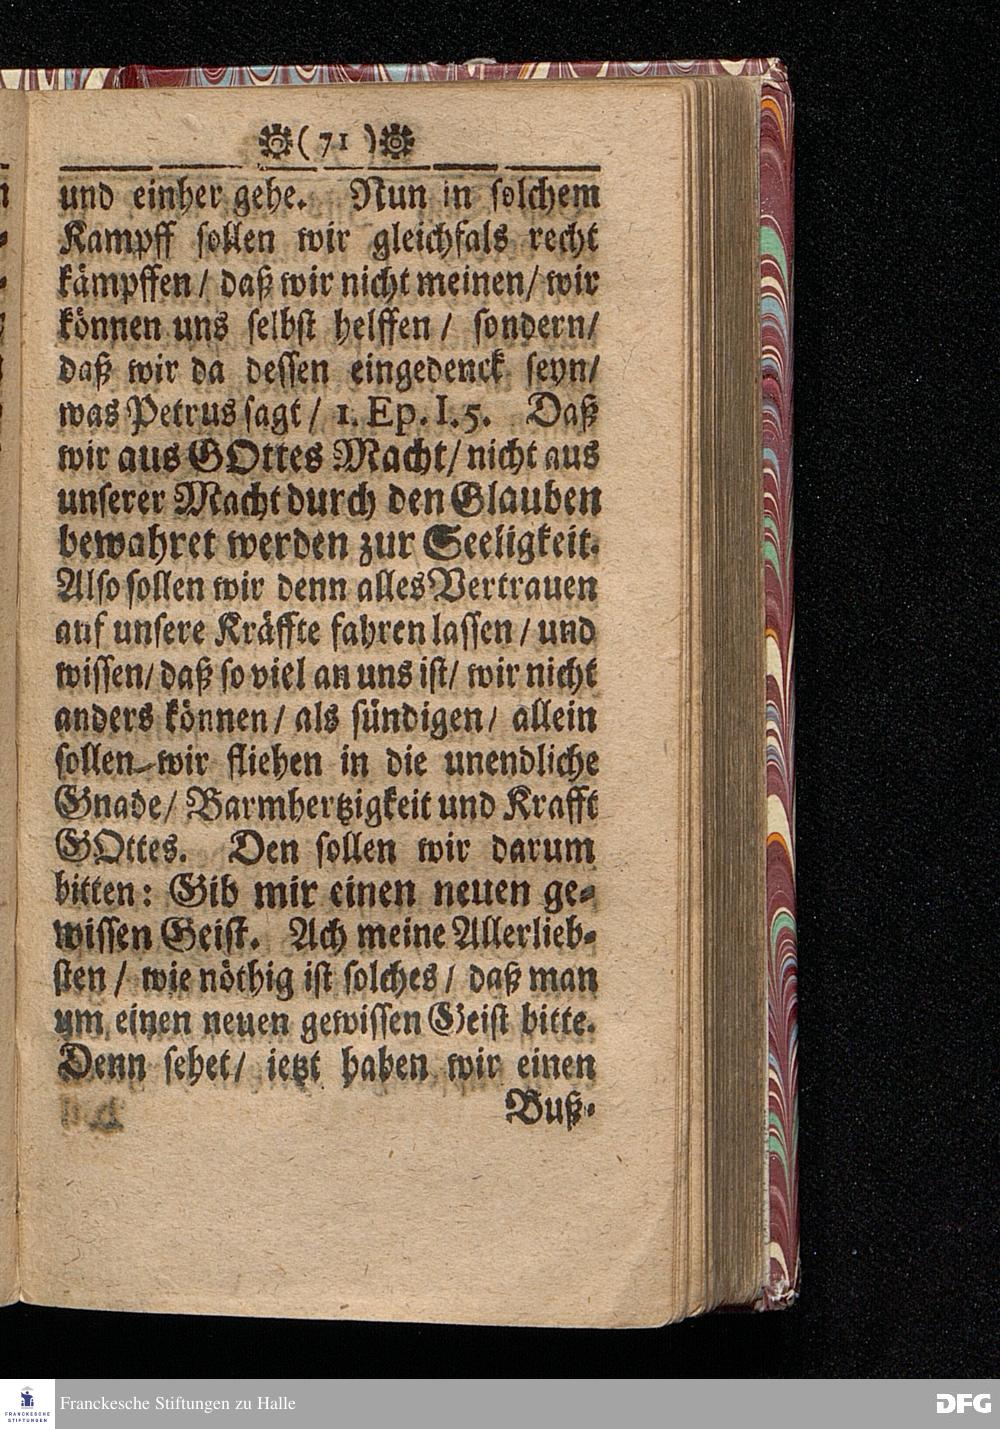 ( 71 )
und einher gehe. Nun in solchem
Kampff sollen wir gleichfals recht
kämpffen / daß wir nicht meinen/ wir
können uns selbst helffen / sondern/
daß wir da dessen eingedenck seyn/
was Petrus sagt / 1. Ep. I. 5. Daß
wir aus GOttes Macht/ nicht aus
unserer Macht durch den Glauben
bewahret werden zur Seeligkeit.
Also sollen wir denn alles Vertrauen
auf unsere Kräffte fahren lassen / und
wissen/ daß so viel an uns ist/ wir nicht
anders können / als sündigen/ allein
sollen wir fliehen in die unendliche
Gnade/ Barmhertzigkeit und Krafft
GOttes. Den sollen wir darum
bitten: Gib mir einen neuen ge-
wissen Geist. Ach meine Allerlieb-
sten / wie nöthig ist solches / daß man
um einen neuen gewissen Geist bitte.
Denn sehet/ ietzt haben wir einen
Buß-
FRANCKESCHE
STIFTUNGEN
Franckesche Stiftungen zu Halle
DFG